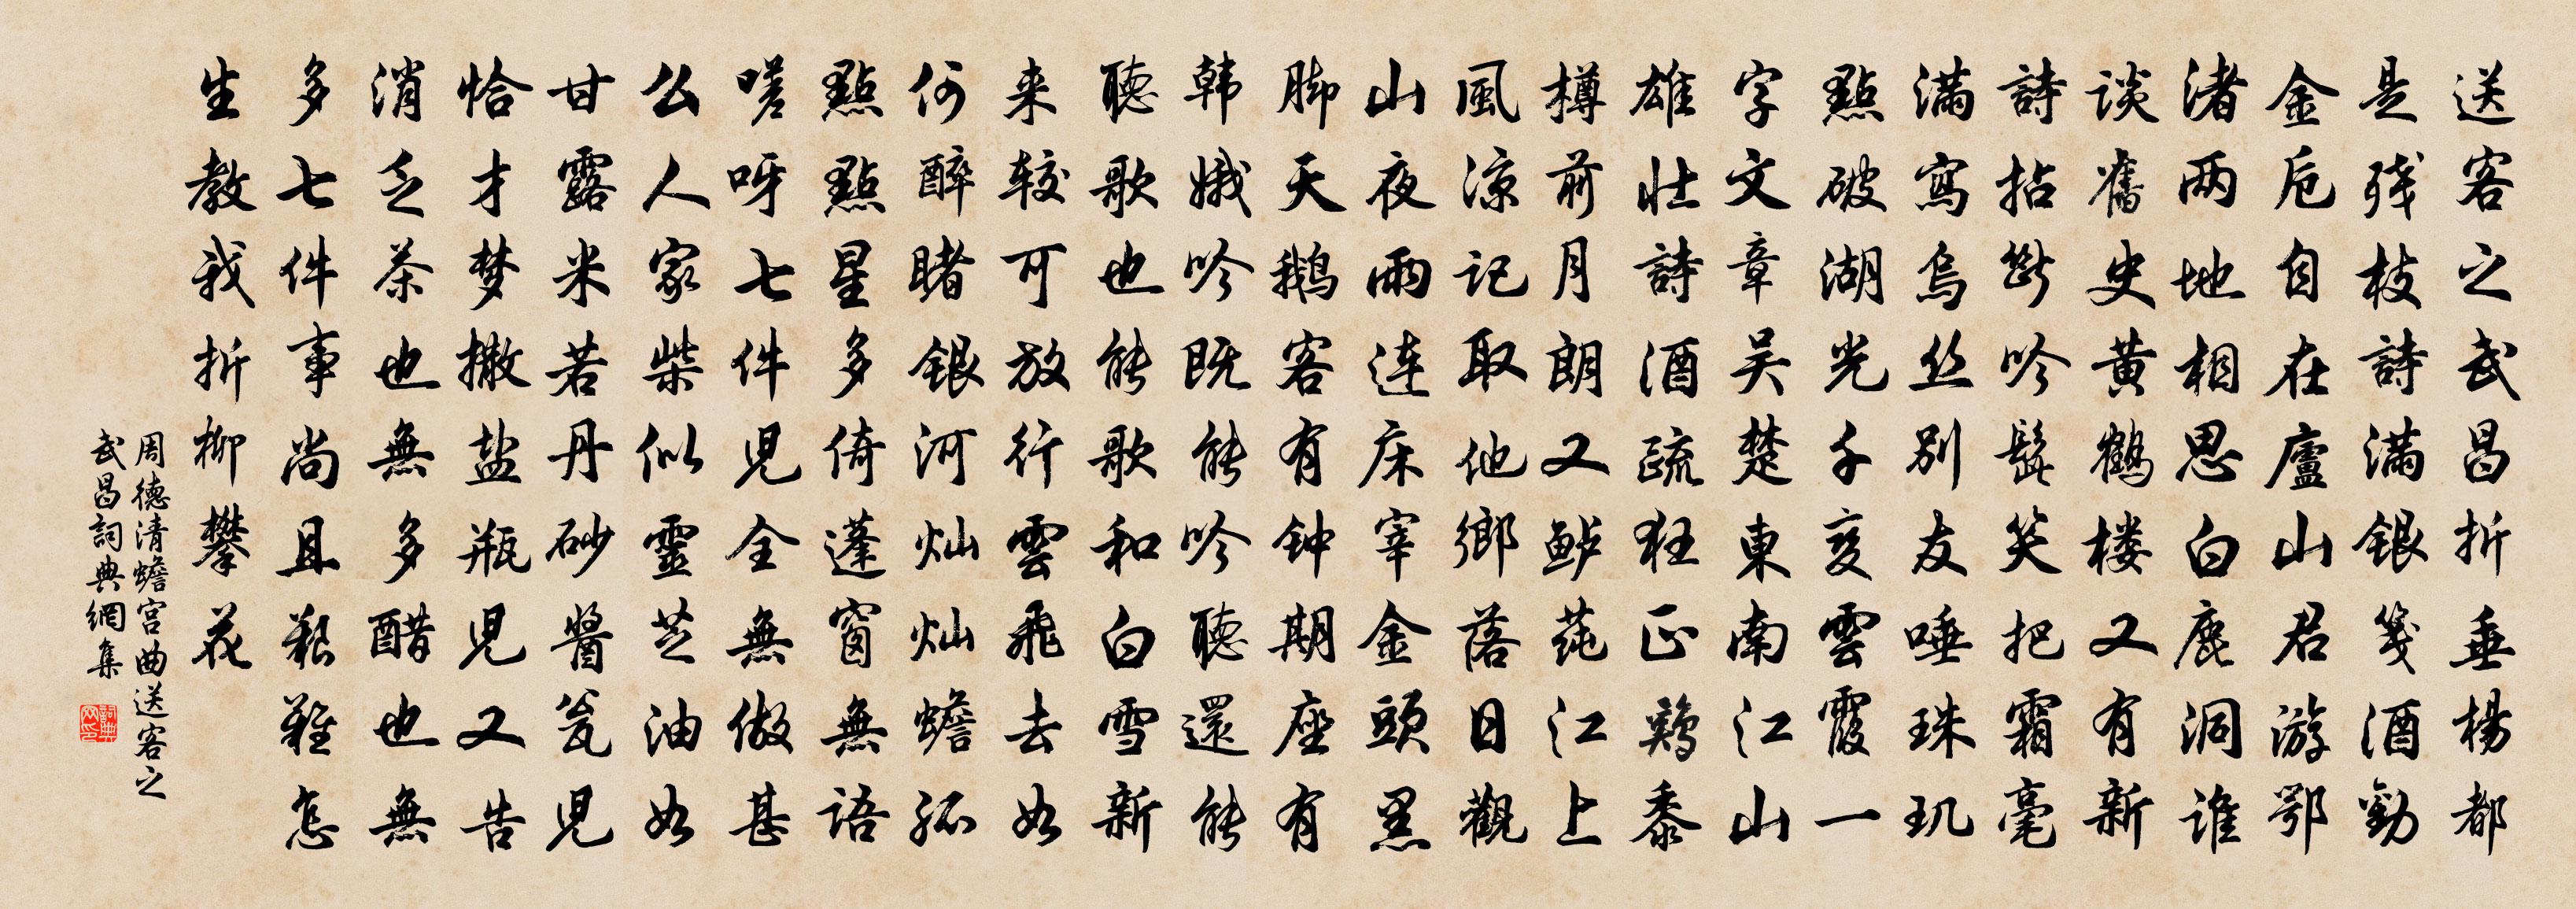 送客之武昌折垂楊都
是残枝詩满银箋酒勸
金卮自在廬山君游鄂
渚两地相思白鹿洞谁
谈舊史黄鶴楼又有新
詩拈斷吟髭笑把霜毫
满寫烏丝别友唾珠玑
點破湖光千变雲霞一
字文章吴楚東南江山
雄壮詩酒疏狂正鷄黍
樽前月朗又鲈莼江上
風涼记取他鄉落日觀
山夜雨连床宰金頭黑
脚天鹅客有钟期座有
韩娥吟既能吟聽還能
聽歌也能歌和白雪新
来较可放行雲飛去如
何醉睹银河灿灿蟾孤
點點星多倚蓬窗無語
嗟呀七件児全無做甚
么人家柴似靈芝油如
甘露米若丹砂醬瓮児
恰才梦撒盐瓶児又告
消乏茶也無多醋也無
多七件事尚且艰难怎
生教我折柳攀花
周德清蟾宫曲送客之
武昌詞典網集
詞典网印